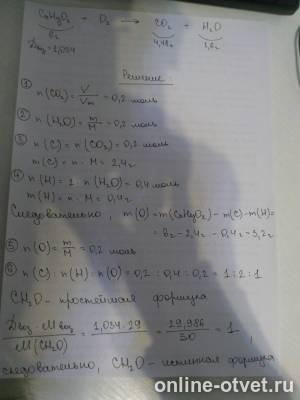 CxHyOz + O₂ → CO₂ + H₂O
6г 4,48л 3,6г
Dвоз = 1,034
Решение:
① n(CO₂) = V/Vm = 0,2 моль
② n(H₂O) = m/M = 0,2 моль
③ n(C) = n(CO₂) = 0,2 моль
m(C) = n · M = 2,4г
④ n(H) = 2 · n(H₂O) = 0,4 моль
m(H) = n · M = 0,4г
Следовательно, m(O) = m(CxHyOz) - m(C) - m(H) =
= 6г - 2,4г - 0,4г = 3,2г
⑤ n(O) = m/M = 0,2 моль
⑥ n(C) : n(H) : n(O) = 0,2 : 0,4 : 0,2 = 1 : 2 : 1
CH₂O - простейшая формула
Dвоз · Mвоз / M(CH₂O) = 1,034 · 29 / = 29,986 / 30 = 1 ,
следовательно, CH₂O - истинная формула
online-otvet.ru